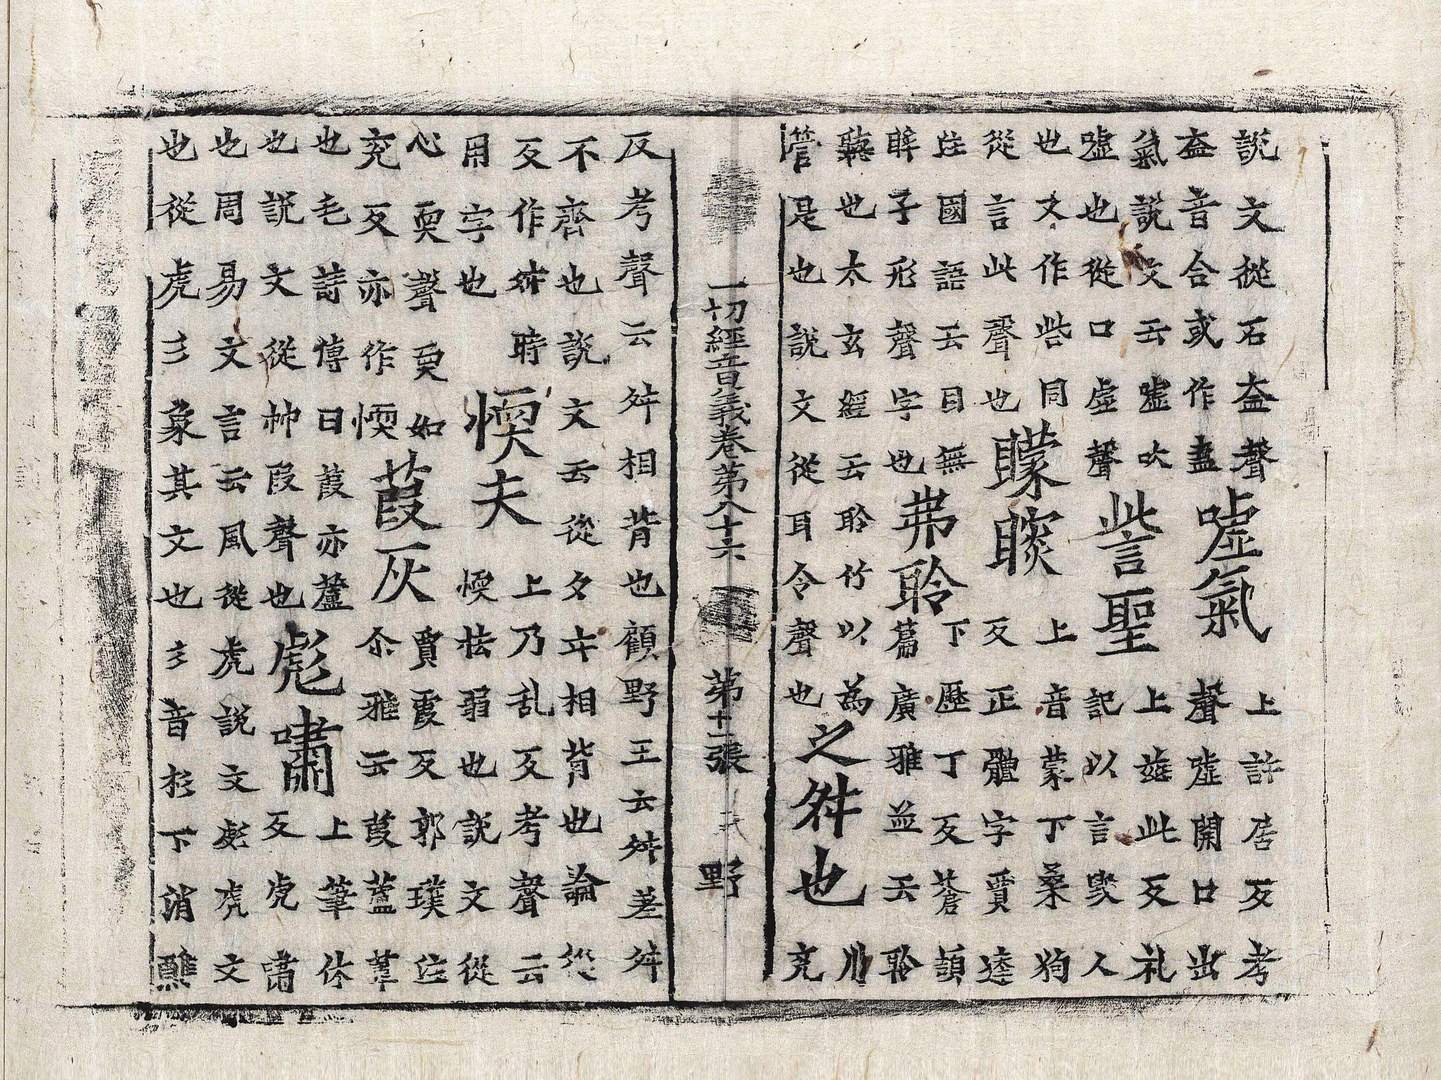 說文從石盍聲
盍音合或作盡
嘘氣
上許居反考
聲嘘開口出
氣說文云嘘吹
嘘也從口虛聲
訾聖
上茲此反礼
記以言毀人
也文作呰同
從言此聲也
矇瞍
上音蒙下桑狗
反正體字賈逵
註國語云目無
眸子形聲字也
弗聆
下歷丁反蒼頡
篇廣雅並云聆
聽也太玄經云聆竹以為
管是也說文從耳令聲也
之舛也
川
兖
一切經音義卷第八十六 第十一張 野
反考聲云舛相背也顧野王云舛差舛
不齊也說文云從夕㐄相背也論從
反作舛時
用字也
愞夫
上乃乱反考聲云
愞怯弱也說文從
心耎聲耎如
兖反亦作愞
葭灰
賈霞反郭璞註
尒雅云葭蘆葦
也毛詩傳曰葭亦蘆
也說文從艸葭聲也
彪嘯
上筆休
反虎嘯
也周易文言云風從虎說文彪虎文
也從虎彡象其文也彡音杉下消醮